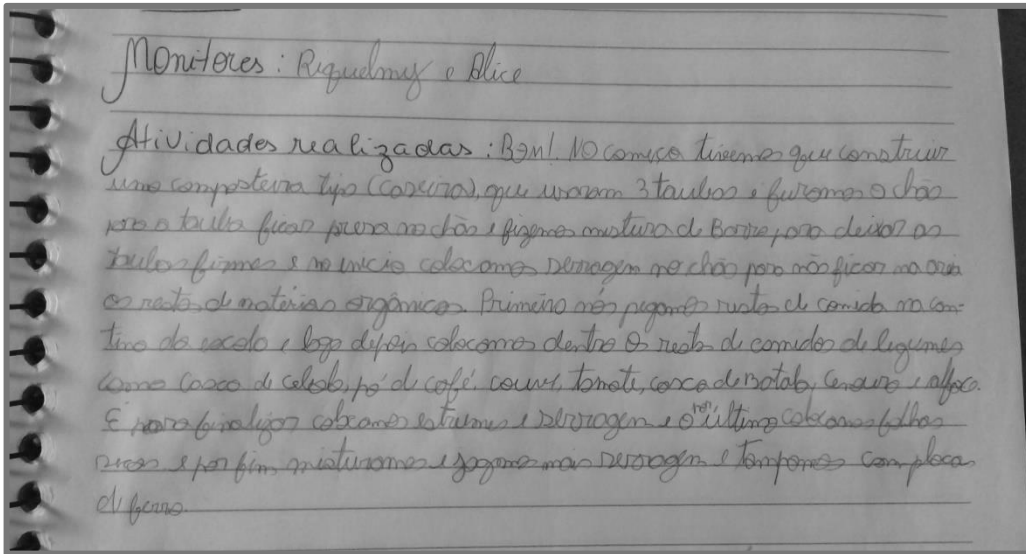 Monitores: Riquelmy e Alice
Atividades realizadas: Bem! No começo tivemos que construir
uma composteira tipo (caseira), que usaram 3 taubos e furamos o chão
para a tauba ficar presa no chão e fizemos mistura de Barro, para deixar as
taubas firmes e no inicio colocamos serragem no chão para não ficar na areia
os restos de matérias orgânicos. Primeiro nós pegamos restos de comida na can-
tina da escola e logo depois colocamos dentro os restos de comidas de legumes
como casca de cebola, pó de café, couve, tomate, casca de Batata, Cenoura e alface.
E para finalizar colocamos estrumes e serragem e por último colocamos folhas
secas e por fim, misturamos e jogamos mais serragem e tampamos com placas
de ferro.